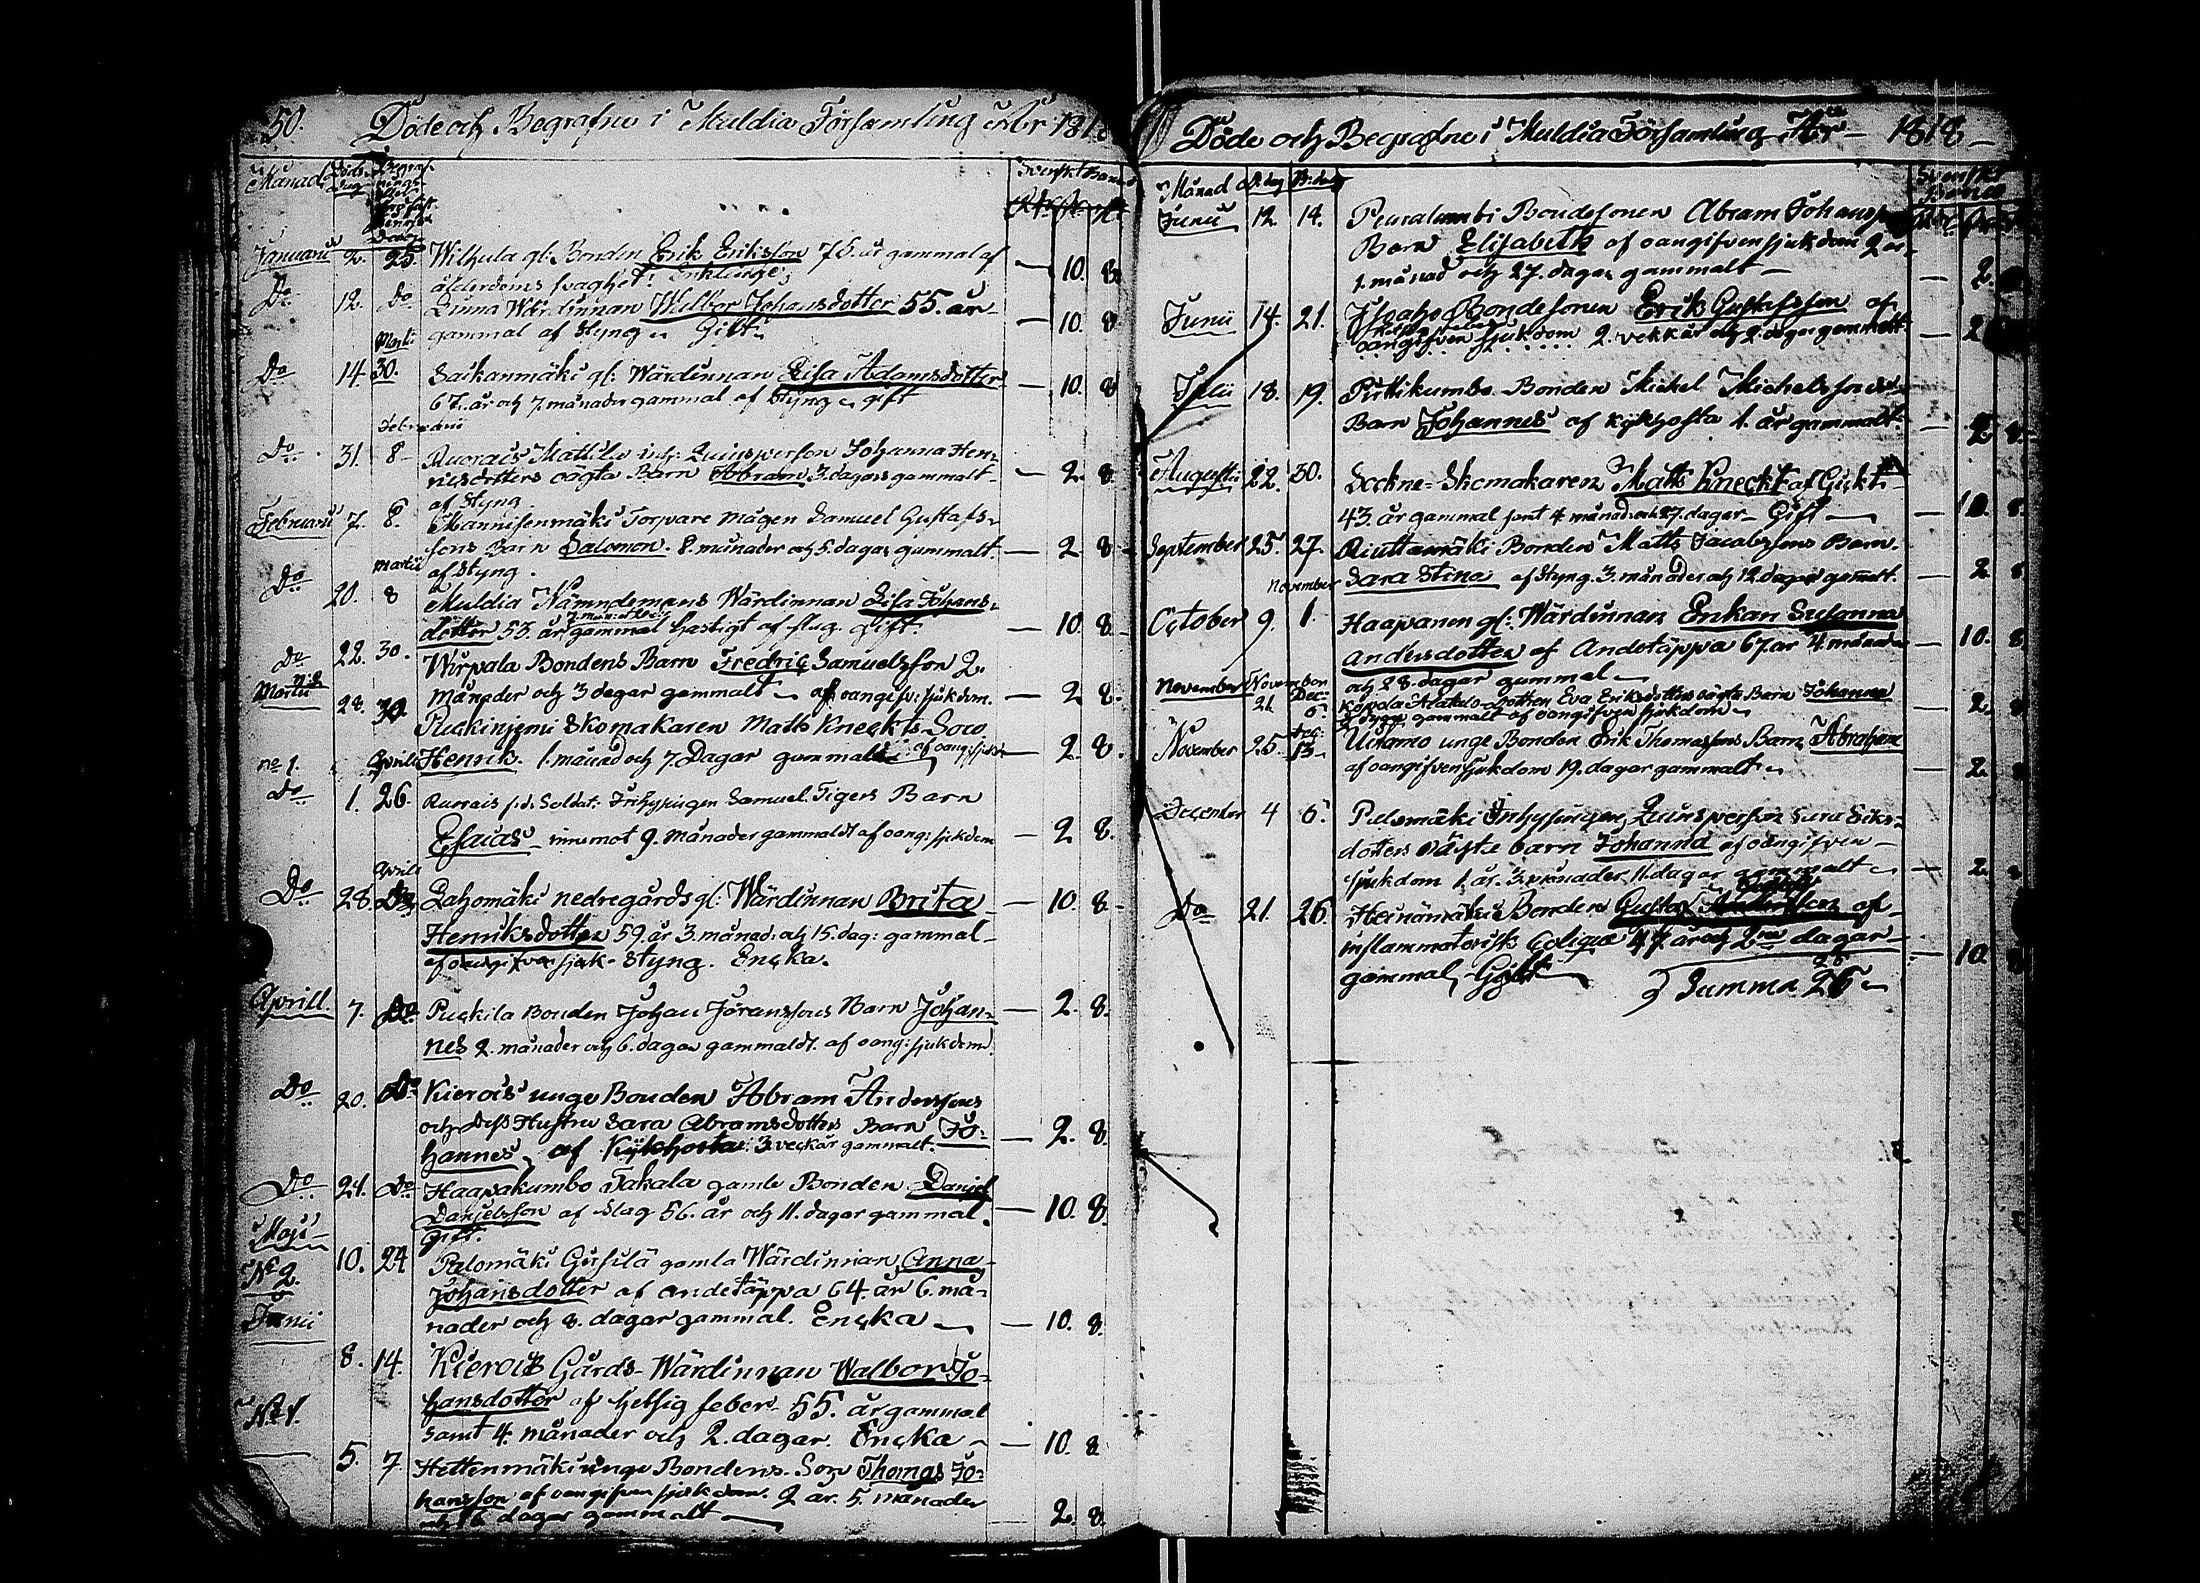 50. Döde och Begrafne i Muldia Församling Åhr 1818
Månad Döds Dag Begrafnings
Svenskt Banco
Januarii 2. 25. Wilhula gl. Bonden Erik Eriksson 75. år gammal af 10. 8.
ålderdoms svaghet. Enklinge
Do 12. Do Wärdinnan Walbor Johansdotter 55. år 10. 8.
gammal af Styng Gift
Martii
Do 14 30. Saikanmäki gl: Wärdinnan Lisa Adamsdotter 10. 8
67. år och 7. månader gammal af Styng gift
Februarii
Do 31. 8 Ruorais Mattila Quinsperson Johanna Hen-
ricsdotters oägta Barn Abram 3. dagars gammalt 2. 8.
af Styng
Februarii 7. 8. Mannisenmäki Torpare mågen Samuel Gustafs-
sons Barn Salomon. 8. månader och 5. dagar gammalt 2. 8
af Styng.
Martii
Do 20. 8 Muldia Nämndemans Wärdinnan Lisa Johans-
dotter 53. år gammal hastigt af slag. gift. 10. 8.
Do 22. 30. Wirpala Bondens Barn Fredric Samuelsson 2.
månader och 3 dagar gammalt af oangifv: sjukdom. 2. 8.
Martii 28. 30. Puckinjemi Skomakaren Matts Kneckts Son
Henrik. 1. månad och 7. Dagar gammal af oang: sjukd 2. 8.
no 1. Aprill
Do 1. 26. Ruorais f.d. Soldat: Inhysingen Samuel Tigers Barn
Esaias innemot 9. månader gammaldt af oang: sjukdom 2 8.
Aprill
Do 28. Do Lahomäki nedregårds gl: Wärdinnan Brita 10. 8
Henriksdotter 59. år 3. månad: och 15. dag: gammal
af oangifven sjuk- Styng. Encka.
Aprill. 7. Do Puckila Bonden Johan Jöranssons Barn Johan- 2. 8.
nes 2. månader och 6. dagar gammaldt. af oang: sjukdom
Do 20. Do Kierois unge Bonden Abram Anderssons
och dess Hustru Sara Abramsdotters Barn Jo- 2. 8.
hannes, af Kikhosta: 3. veckår gammalt.
Do 21. Do Haapakumbo Takala gamle Bonden Daniel
Danielsson af Slag 56. år och 11. dagar gammal. 10. 8.
Gift.
Maji
10. 24 Palomäki Girsilä gamla Wärdinnan Anna
No 2. Johansdotter af andetäppa 64 år 6. må-
nader och 8. dagar gammal. Encka 10. 8.
Junii
8. 14. Kierois Gårds-Wärdinnan Walbor Jo-
hansdotter af hetsig feber 55. år gammal
No 1. samt 4. månader och 2. dagar. Encka 10. 8.
5. 7. Hettenmäki unge Bondens Son Thomas Jo-
hansson af oangifven sjukdom. 2 år. 5. månader
och 16 dagar gammalt 2. 8.
Döde och Begrafne i Muldia Församling År 1818
Månad D. dag B. dag
Svenskt Banco
Junii 12. 14. Petralambi Bondesonen Abram Johansson
Barn Elisabeth af oangifven sjukdom 2 år
1. månad och 27. dagar gammalt 2.
Junii 14. 21. Ilvaho Bondesonen Erik Gustafsson af
oangifven sjukdom 2. veckår och 2. dagar gammalt 2
Julii 18. 19. Pittikumbo Bonden Michel Michelsson
Barn Johannes af kikhosta 1. år gammalt 2. 8.
Augusti 22. 30. Sockne-Skomakaren Matts Kneckt af Gickt
43. år gammal samt 4. månad: och 27. dagar Gift 10. 8.
September 25. 27. Riuttamäki Bonden Matts Jacobssons Barn
November
Sara Stina af Styng. 3. månader och 12. dagar gamalt. 2. 8
October 9. 1. Haapanen gl: Wärdinnan Enkan Susanna
Andersdotter af Andetäppa 67. år 4. månad 10. 8
och 28. dagar gammal
November 21. 6. Eva Eriksdotters oägta Barn Johanna 2. 8
gammalt af oangifven sjukdom
November 25. 13 Uitamo unge Bonden Erik Thomassons Barn Abraham
af oangifven sjukdom 19. dagar gammalt 2.
December 4 6. Palomäki Inhysingen, Quinsperson Sara Eriks-
dotters oägta barn Johanna af oangifven
sjukdom 1. år. 3. månader 11. dagar gammalt 2.
Do 21. 26. Heinämäki Bonden Gustaf af
inflammatorisk Colique 47. år och 2ne dagar 10.
gammal, Gift Summa 26